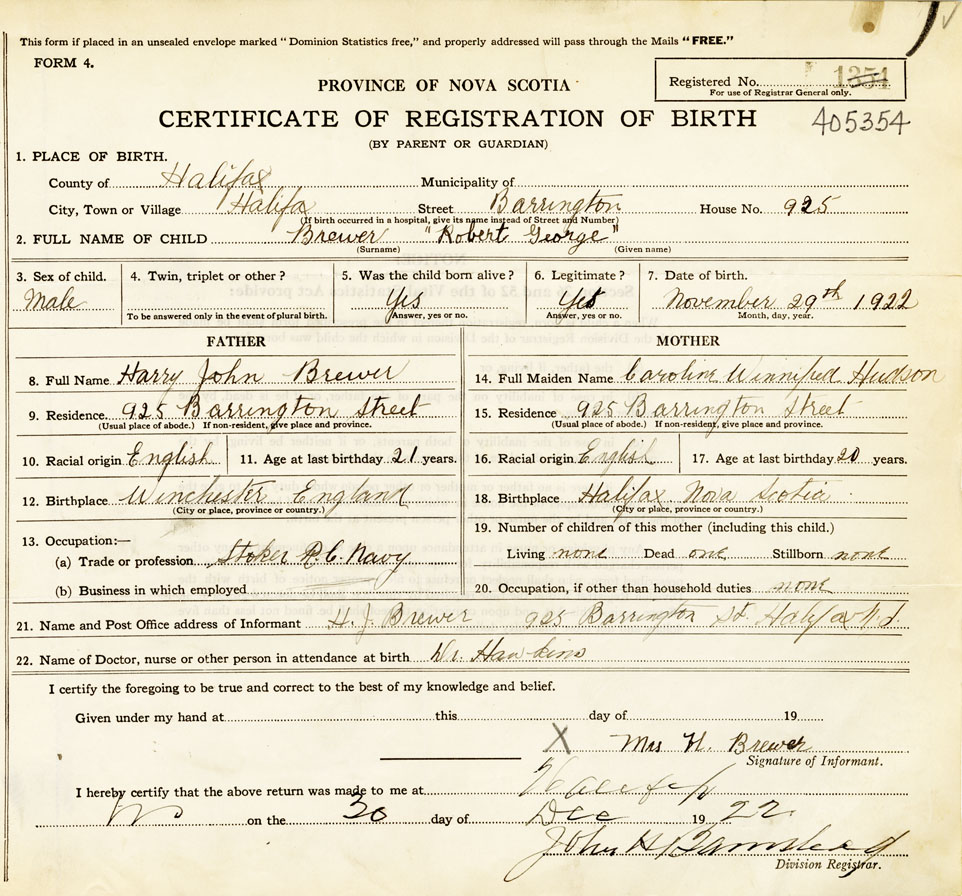 This form if placed in an unsealed envelope marked "Dominion Statistics free," and properly addressed will pass through the Mails "FREE."
FORM 4.
Registered No. 1354
For use of Registrar General only.
PROVINCE OF NOVA SCOTIA
CERTIFICATE OF REGISTRATION OF BIRTH
405354
(BY PARENT OR GUARDIAN)
1. PLACE OF BIRTH.
County of Halifax Municipality of
City, Town or Village Halifa Street Barrington House No. 925
(If birth occurred in a hospital, give its name instead of Street and Number)
2. FULL NAME OF CHILD Brewer "Robert George"
(Surname) (Given name)
3. Sex of child. 4. Twin, triplet or other? 5. Was the child born alive? 6. Legitimate? 7. Date of birth.
Male Yes Yes November 29th 1922
To be answered only in the event of plural birth. Answer, yes or no. Answer, yes or no. Month, day, year.
FATHER
8. Full Name Harry John Brewer
9. Residence. 925 Barrington Street
(Usual place of abode.) If non-resident, give place and province.
10. Racial origin English 11. Age at last birthday 21 years.
12. Birthplace Winchester England
(City or place, province or country.)
13. Occupation:—
(a) Trade or profession Stoker R.C. Navy
(b) Business in which employed
MOTHER
14. Full Maiden Name Caroline Winnifred Hudson
15. Residence 925 Barrington Street
(Usual place of abode.) If non-resident, give place and province.
16. Racial origin English 17. Age at last birthday 20 years.
18. Birthplace Halifax Nova Scotia
(City or place, province or country.)
19. Number of children of this mother (including this child.)
Living none Dead one Stillborn none
20. Occupation, if other than household duties none
21. Name and Post Office address of Informant H. J. Brewer 925 Barrington St. Halifax N.S.
22. Name of Doctor, nurse or other person in attendance at birth Dr. Hawkins
I certify the foregoing to be true and correct to the best of my knowledge and belief.
Given under my hand at this day of 19
X Mrs H. Brewer
Signature of Informant.
I hereby certify that the above return was made to me at Halifax
on the 30 day of Dec 19 22.
John H Barnstead
Division Registrar.